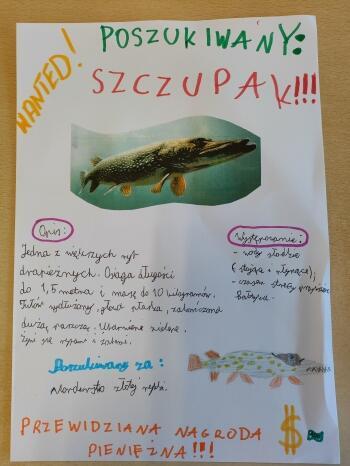 WANTED!
POSZUKIWANY:
SZCZUPAK!!!
Opis:
Jedna z większych ryb
drapieżnych. Osiąga długość
do 1,5 metra i masę do 10 kilogramów.
Tułów wydłużony, głowa płaska, zakończona
dużą paszczą. Ubarwienie zielone.
Żywi się rybami i żabami.
Występowanie:
- wody słodkie
(stojące i płynące),
- czasem strefy przybrzeżne
Bałtyku.
Poszukiwany za:
Morderstwo złotej rybki.
PRZEWIDZIANA NAGRODA
PIENIĘŻNA!!!
$